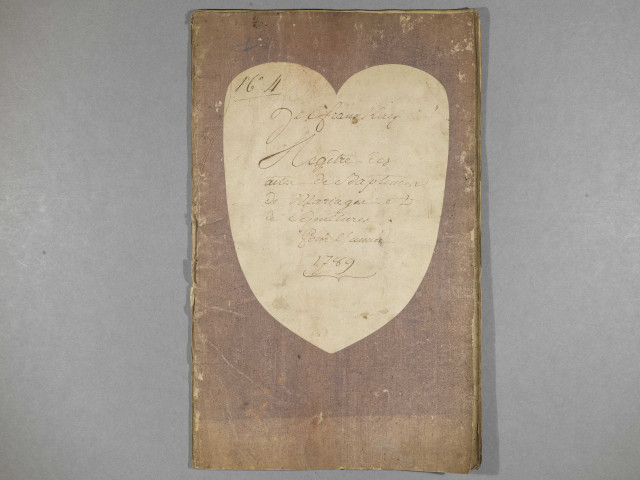 N° 4
Registre des
actes de Baptemes
de Mariages et
de Sepultures
Pour l'année
1789